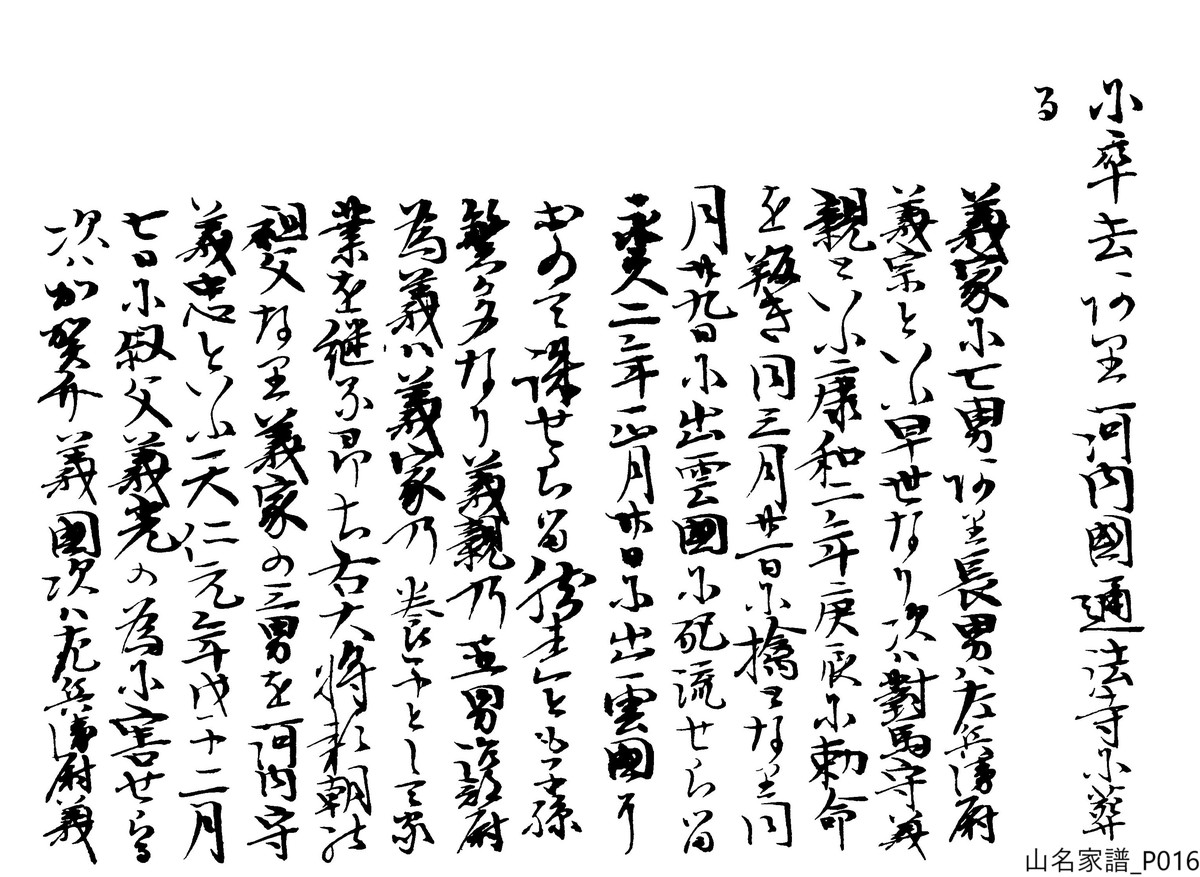 に卒去ありて河内國通法寺に葬
る
義家に七男あり長男ハ左兵衛尉
義宗といふ早世なり次ハ對馬守義
親といふ康和二年庚辰に勅命
を叛き同三月廿一日に擒となり同
月廿九日に出雲國に配流せらる
年正月廿日に出雲國に
おのて誅せらる然といへとも子孫
繁多なり義親乃 男 尉
為義ハ義家乃養子として家
業を継る即ち右大将頼朝の
祖父なり義家の三男を河内守
義忠といふ天仁元年戊子二月
七日に叔父義光の為に害せらる
次ハ加賀介義國次ハ左兵衛尉義
山名家譜_P016